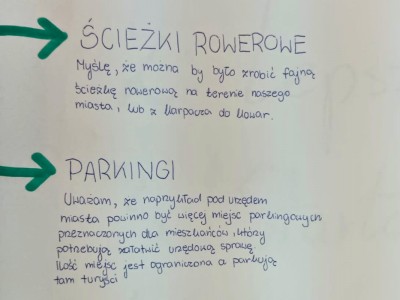 ŚCIEŻKI ROWEROWE
Myślę, że można by było zrobić fajną
ścieżkę rowerową na terenie naszego
miasta, lub z Karpacza do Kowar.
PARKINGI
Uważam, że naprzykład pod urzędem
miasta powinno być więcej miejsc parkingowych
przeznaczonych dla mieszkańców, który
potrzebują załatwić urzędową sprawę.
Ilość miejsc jest ograniczona a parkują
tam turyści